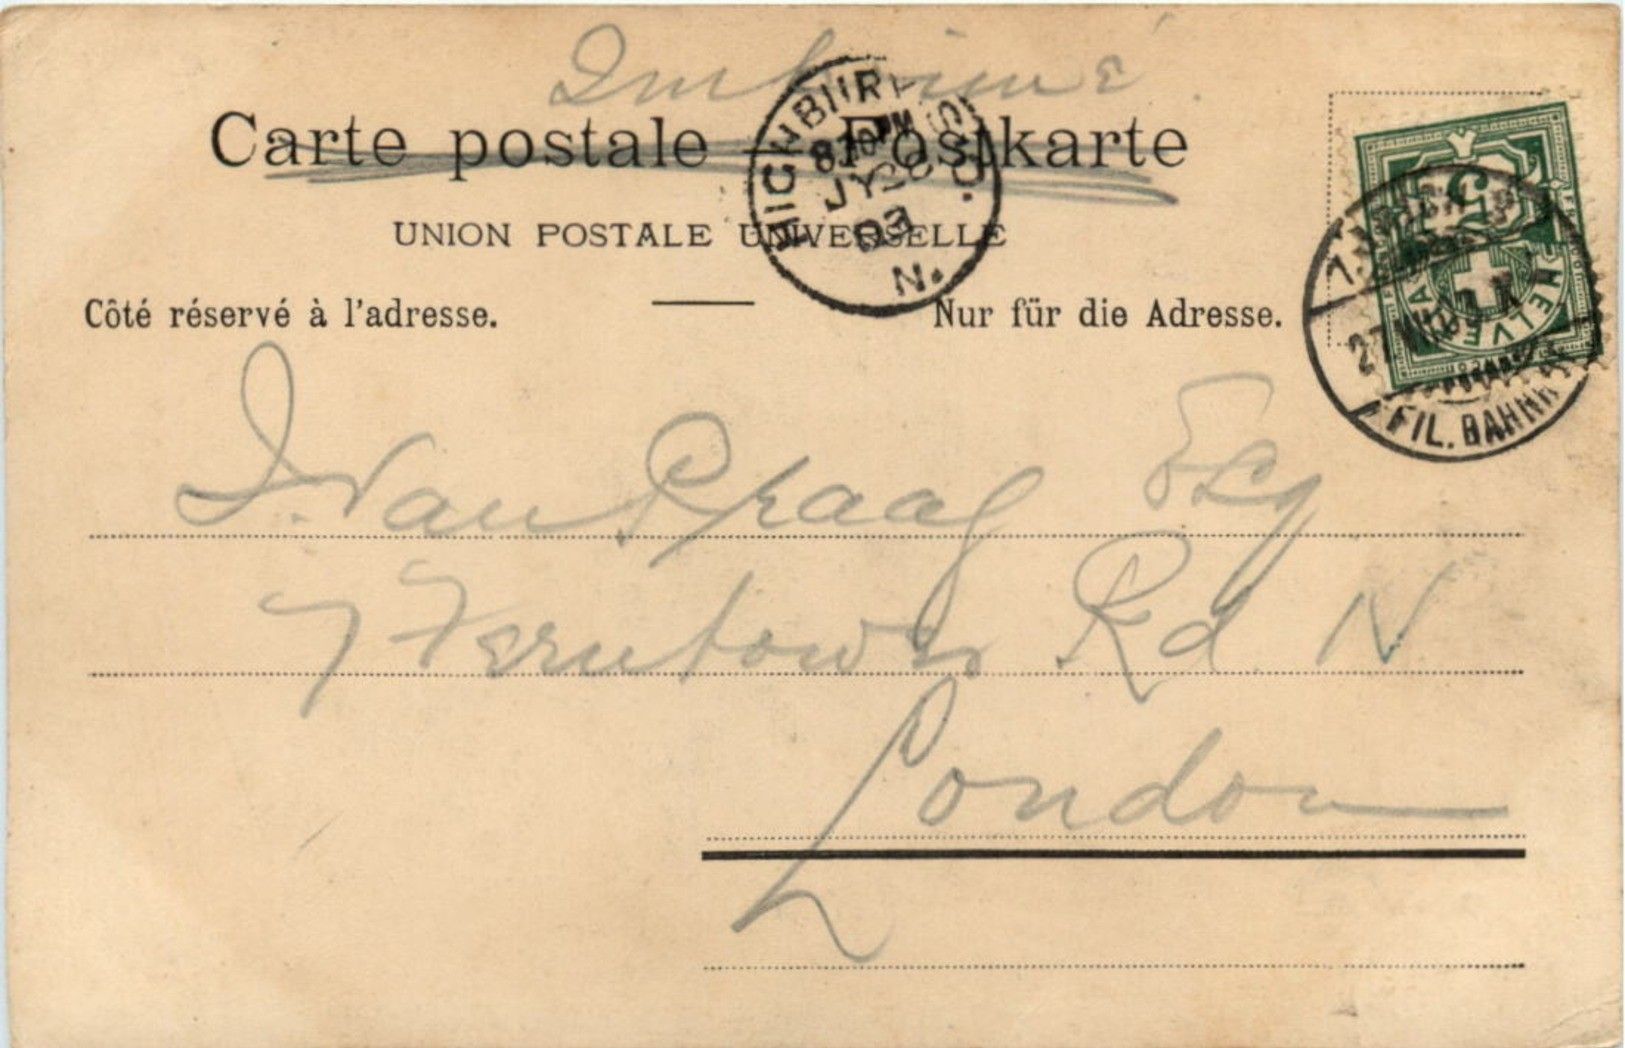 Imprimé
Carte postale — Postkarte
UNION POSTALE UNIVERSELLE
Côté réservé à l'adresse.
Nur für die Adresse.
HIGHBURY S.O.
8.10 PM
JY 28
03
N.
5
HELVETIA
FIL. BAHNH
J. Van Praag Esq
7 Ferntower Rd. N
London